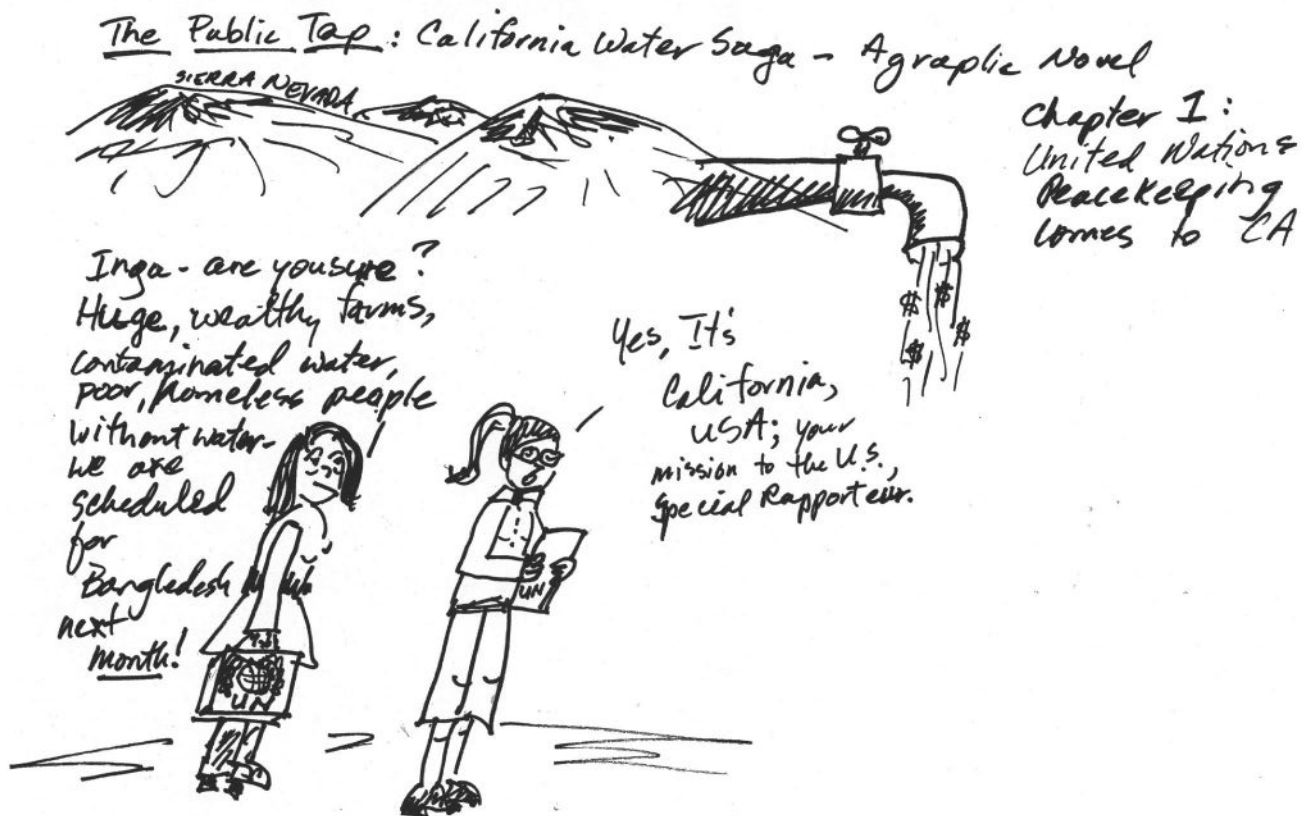 The Public Tap: California Water Saga - A graphic Novel
Chapter I:
United Nations
Peacekeeping
comes to CA
SIERRA NEVADA
$ $
$ $
Inga - are you sure?
Huge, wealthy farms,
contaminated water,
poor, homeless people
without water-
we are
scheduled
for
Bangledesh
next
month!
Yes, It's
California,
USA; your
mission to the U.S.,
Special Rapporteur.
UN
UN